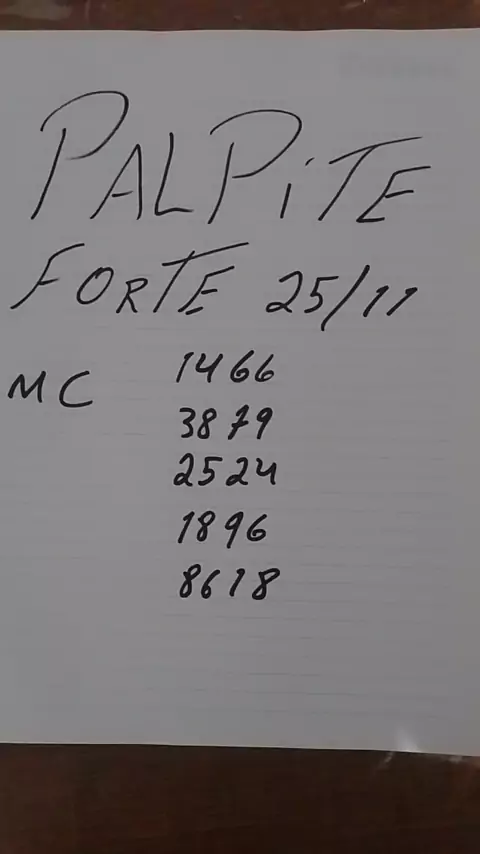 PALPiTE
FORTE 25/11
MC 1466
3879
2524
1896
8618